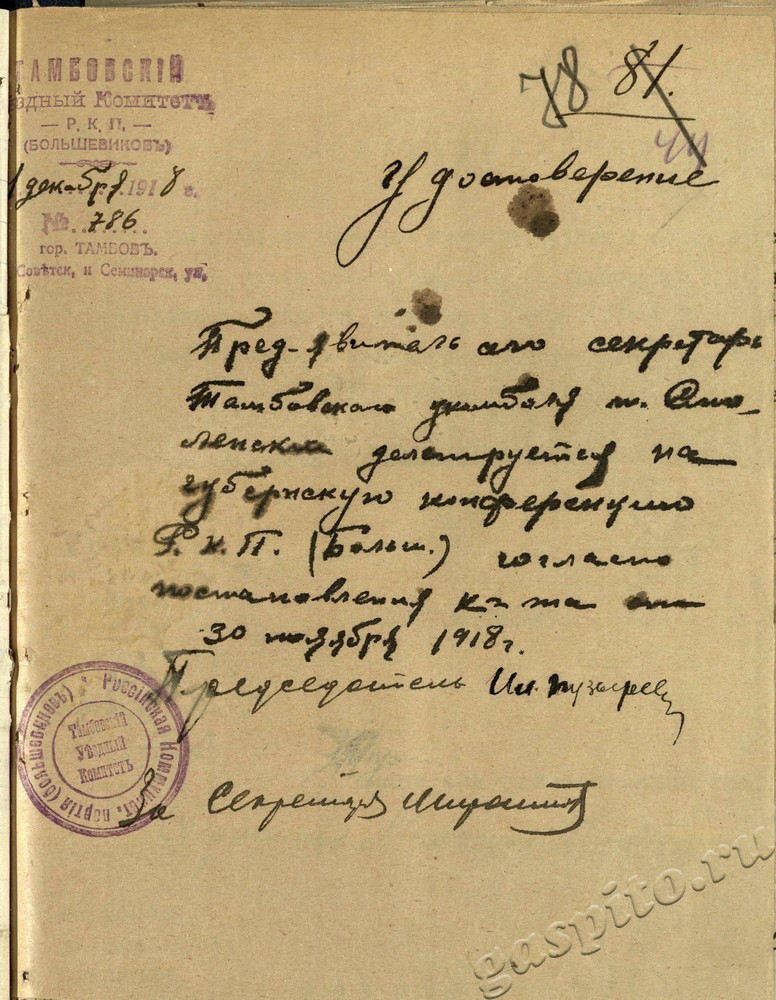 ТАМБОВСКІЙ
здный Комитетъ
— Р. К. П. —
(БОЛЬШЕВИКОВЪ)
1 декабря 1918 г.
№ 786
гор. ТАМБОВЪ.
Совѣтск. и Семинарск. ул.
78 81.
Удостоверение
Пред-явитель сего секретарь
Тамбовского укомболя т. Смо-
ленский делегируется на
губернскую конференцию
Р.К.П. (Больш.) согласно
постановления к-та от
30 ноября 1918 г.
Председатель Ил. Пузырев
За Секретаря
Россійская Коммунист. партія (большевиковъ)
Тамбовскій
Уѣздный
Комитетъ
gaspito.ru